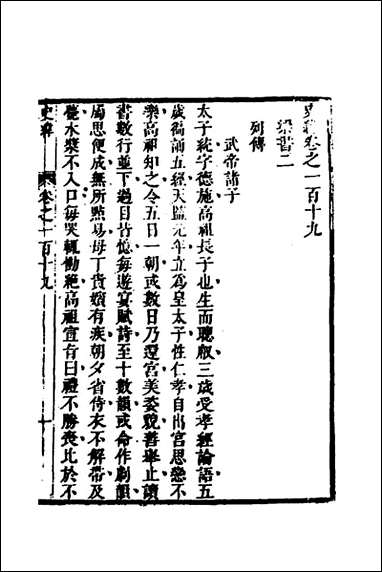 史緯卷之一百十九
梁書二
列傳
武帝諸子
太子統字德施高祖長子也生而聰叡三歲受孝經論語五
歲徧誦五經天監元年立為皇太子性仁孝自出宮思戀不
樂高祖知之令五日一朝或數日乃還宮美姿貌善舉止讀
書數行並下過目皆憶每遊宴賦詩至十數韻或命作劇韻
屬思便成無所點易母丁貴嬪有疾朝夕省侍衣不解帶及
薨水漿不入口每哭輒慟絕高祖宣旨曰禮不勝喪比於不
史緯 卷之一百十九 一